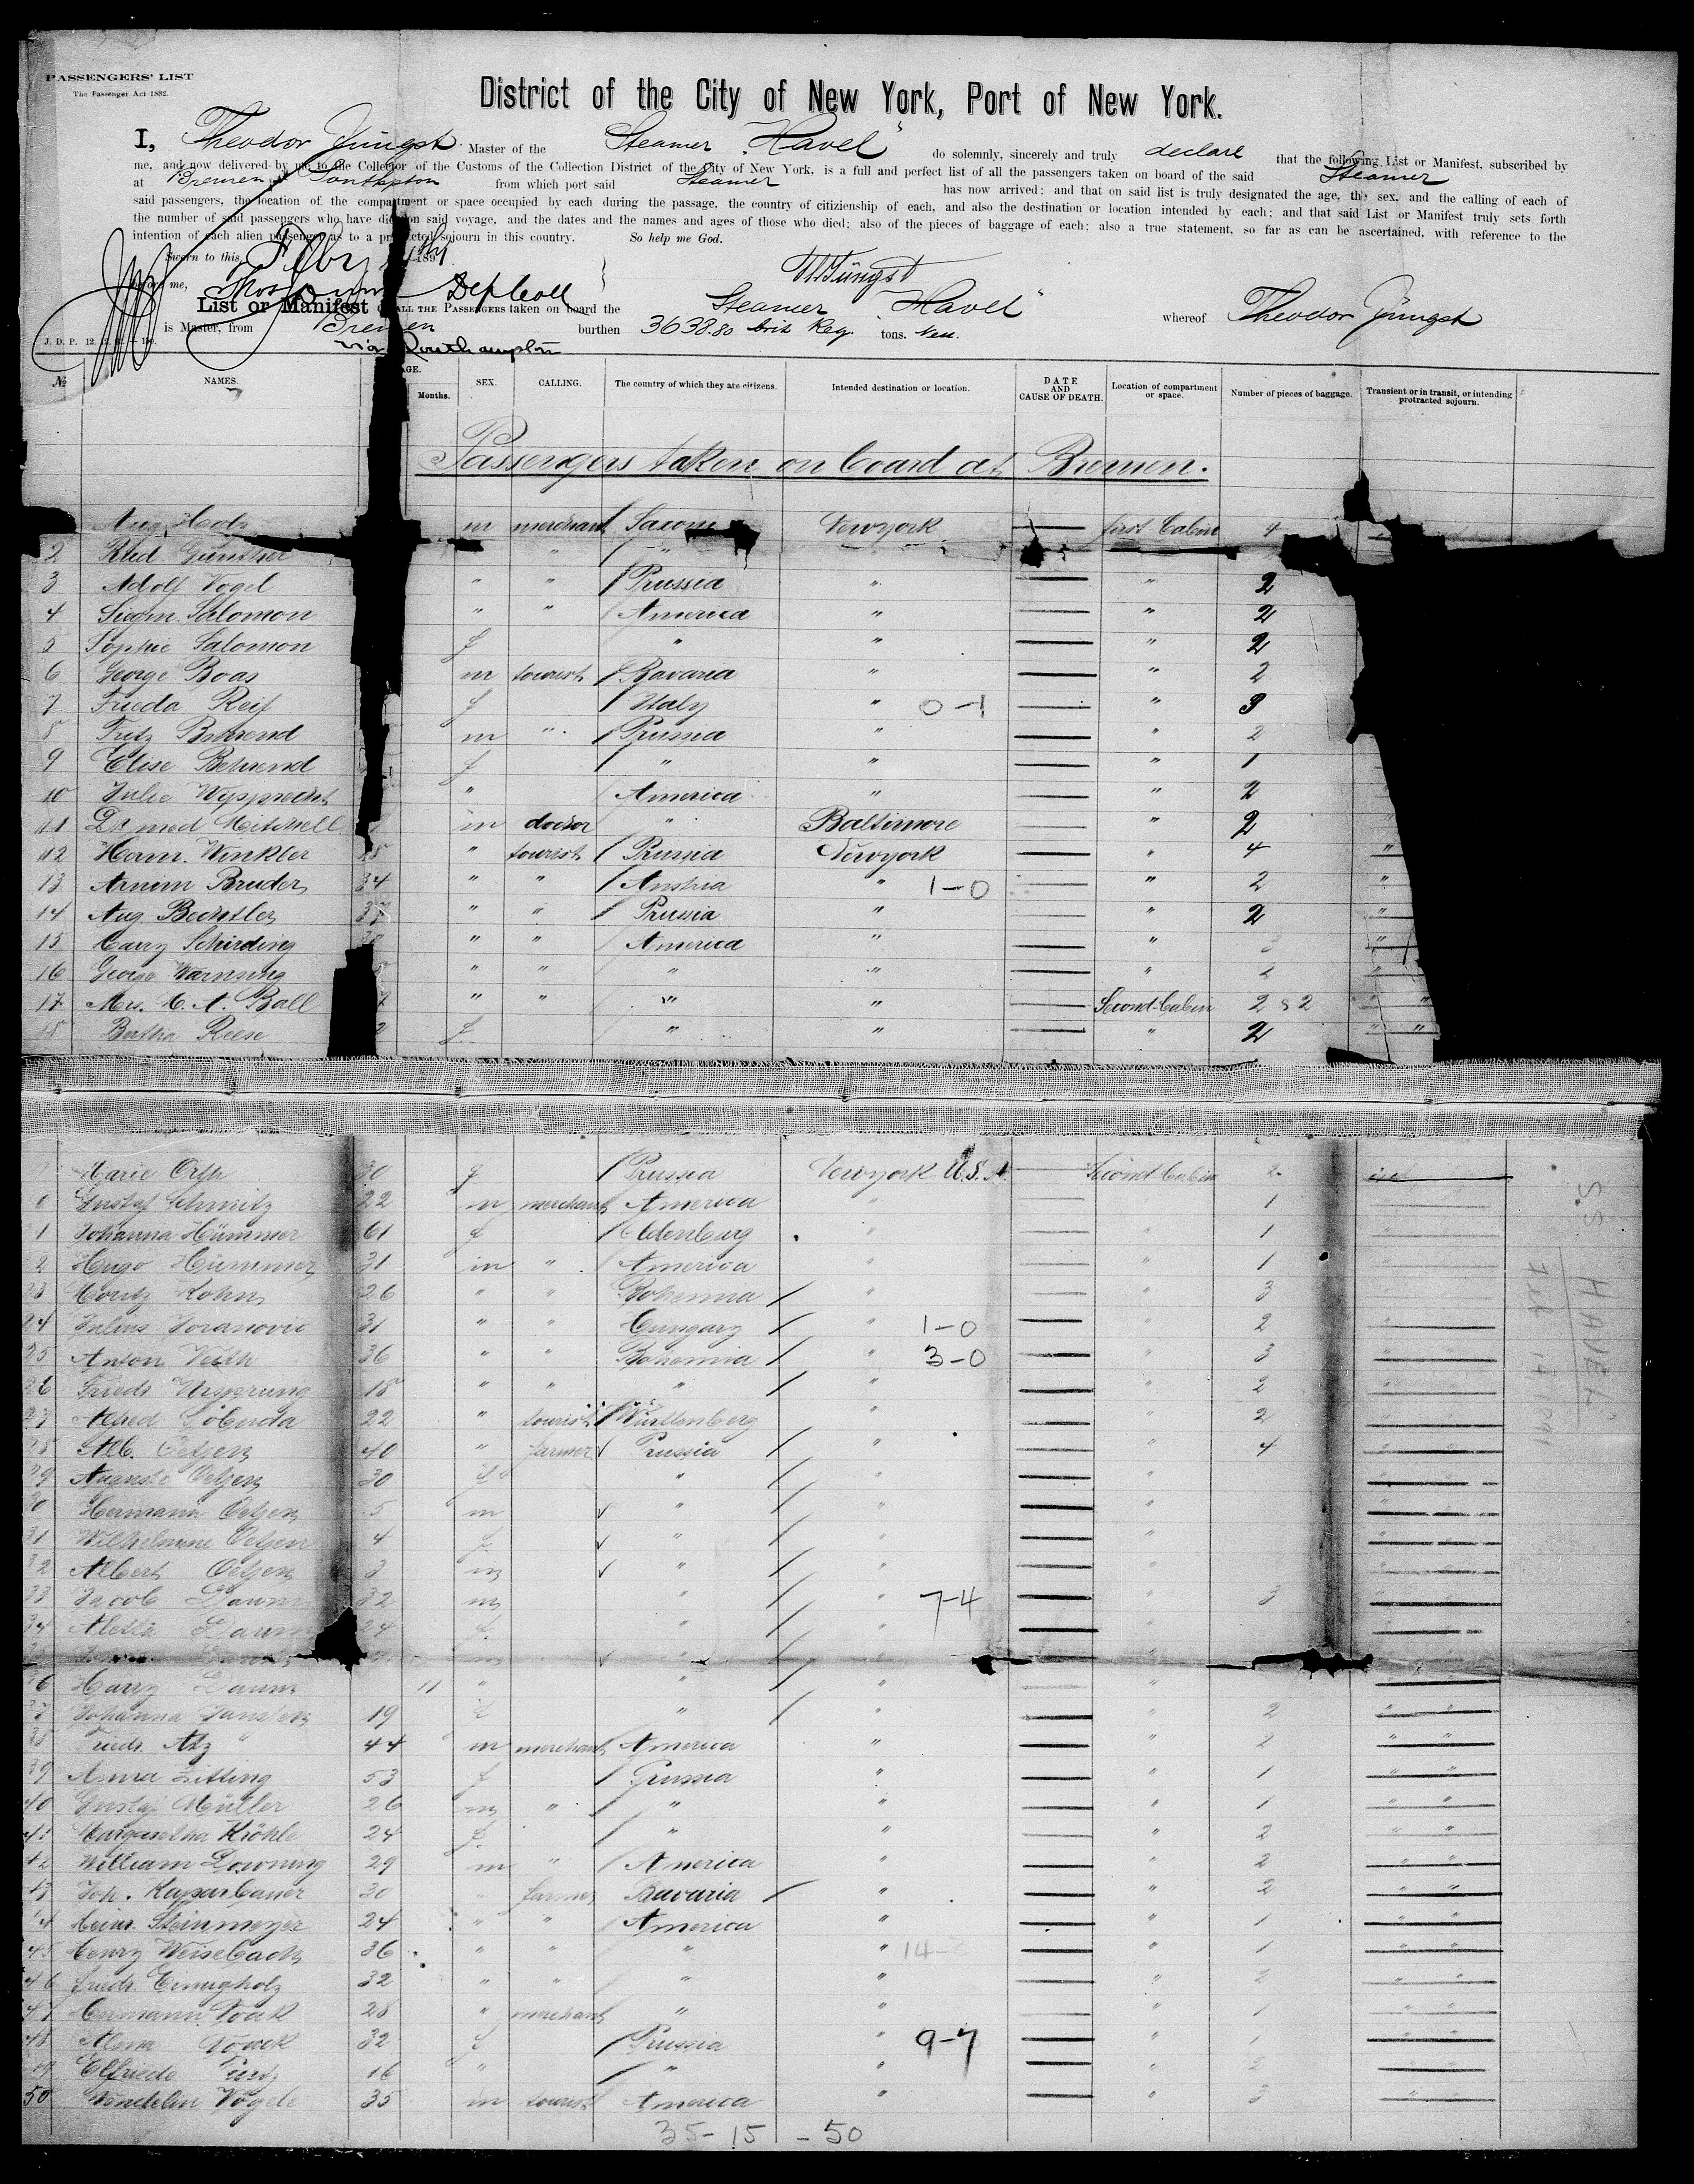 PASSENGERS' LIST
The Passenger Act 1882.
District of the City of New York, Port of New York.
I, Theodor Jüngst Master of the Steamer "Havel" do solemnly, sincerely and truly declare that the following List or Manifest, subscribed by
me, and now delivered by me to the Collector of the Customs of the Collection District of the City of New York, is a full and perfect list of all the passengers taken on board of the said Steamer
at Bremen & Southpton from which port said Steamer has now arrived; and that on said list is truly designated the age, the sex, and the calling of each of
said passengers, the location of the compartment or space occupied by each during the passage, the country of citizienship of each, and also the destination or location intended by each; and that said List or Manifest truly sets forth
the number of said passengers who have died on said voyage, and the dates and the names and ages of those who died; also of the pieces of baggage of each; also a true statement, so far as can be ascertained, with reference to the
intention of each alien passenger as to a protracted sojourn in this country. So help me God.
Sworn to this, Feby 14th 189
before me, Th. Jüngst
List or Manifest OF ALL THE PASSENGERS taken on board the Steamer "Havel" whereof Theodor Jüngst
is Master, from Bremen burthen 3638.80 Brit Reg. tons.
via Southampton
J. D. P. 12.
№ NAMES. AGE. Months. SEX. CALLING. The country of which they are citizens. Intended destination or location. DATE AND CAUSE OF DEATH. Location of compartment or space. Number of pieces of baggage. Transient or in transit, or intending protracted sojourn.
Passengers taken on board at Bremen.
Aug m merchant Newyork first Cabin 4
2 Rud Günther " / "
3 Adolf Vogel " " / Prussia " " 2
4 Sigm. Salomon " " / America " " 2
5 Sophie Salomon f " " " 2
6 George Boas m tourist / Bavaria " " 2
7 Frieda Reif f / Italy " 0-1 " 3
8 Fritz Behrend m " / Prussia " " 2
9 Elise Behrend f / " " " 1
10 Julie Wypprecht " America " " 2
11 Dr med Mitchell m doctor " Baltimore " 2
12 Herm. Winkler " tourist / Prussia Newyork " 4 "
13 Armin Bruder 34 " " / Austria " 1-0 " 2 "
14 Aug. Bechtler " " / Prussia " " 2 "
15 Carry Schirding " " / America " " 3 "
16 George Warnsing " " " " " 2 "
17 Mrs. H. A. Ball " " " " Second Cabin 2 & 2 " "
18 Bertha Reese f " " " 2 " "
Marie Orth 30 f / Prussia Newyork U.S.A. Second Cabin 2
Gustaf Schmitz 22 m merchant America " 1
1 Johanna Hümmer 61 f / Oldenburg " 1
2 Hugo Hümmer 31 m " / America " " 1
23 Moritz Kohn 26 " " Bohemia / " " 3
24 Julius Joranovic 31 " " Hungary / " 1-0 " 2
25 Anton Veith 36 " " Bohemia / " 3-0 " 3
26 Friedr 18 " " " / " " 2
27 Alfred 22 " tourist / Württenberg " " 2
28 Alb. Oetjen 40 " farmer √ Prussia / " " 4
29 Auguste Oetjen 30 f " / " "
30 Hermann Oetjen 5 m √ " / " "
31 Wilhelmine Oetjen 4 f √ " / " "
32 Albert Oetjen 3 m √ " / " "
33 Jacob Daum 32 m " / " 7-4 " 3
34 Daum 24 f " / " "
36 Harry Daum 11 " " / " "
37 Johanna Janssen 19 f " / " " 2 " "
38 Friedr. Atz 44 m merchant America " " 2 " "
39 Anna Zitting 53 f / Prussia " " 1 " "
40 Gustaf Müller 26 m " / " " " 1 " "
41 Margaretha Kröhle 24 f / " " " 2 " "
42 William Downing 29 m " / America " " 2 " "
43 Joh. Kasparbauer 30 " farmer Bavaria / " " 2 " "
44 Heinr. Steinmeyer 24 " " / America " " 1 " "
45 Henry Weisebach 36 " " " " 14- " 1 " "
46 Friedr. 32 " " " " " 2 " "
47 Hermann 28 " merchant " " " 1 " "
48 Alma 32 f / Prussia " 9-7 " 1 " "
49 Elfriede 16 " / " " " 2
50 Wendelin Vögele 35 m tourist America " " 3 " "
35-15-50
S.S. HAVEL
Feb 14 1891